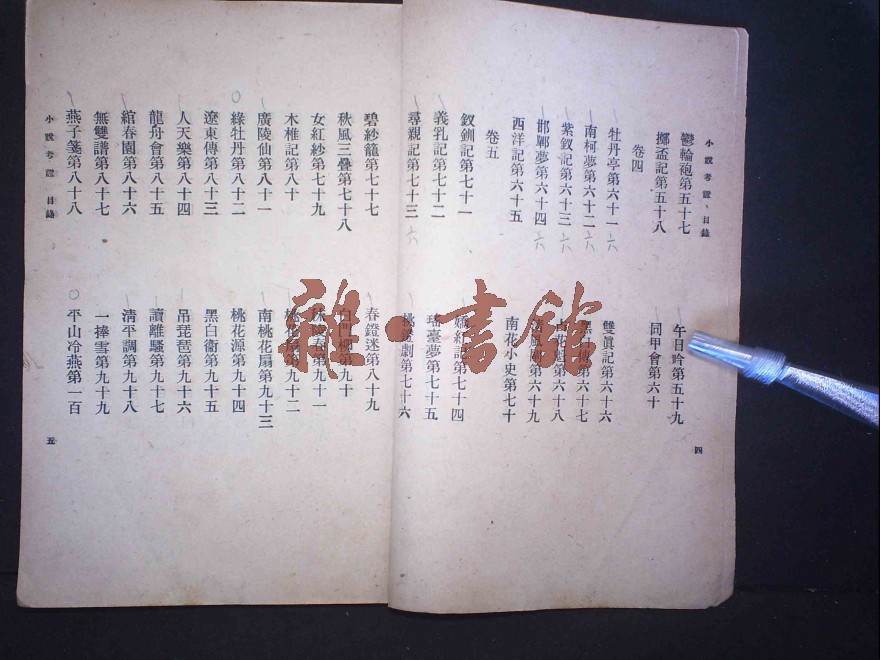 小說考證 目錄
鬱輪袍第五十七
擲盃記第五十八
午日吟第五十九
同甲會第六十
卷四
牡丹亭第六十一
南柯夢第六十二
紫釵記第六十三
邯鄲夢第六十四
西洋記第六十五
雙眞記第六十六
第六十七
第六十八
第六十九
南花小史第七十
卷五
釵釧記第七十一
義乳記第七十二
尋親記第七十三
嬌紅記第七十四
瑤臺夢第七十五
桃燈劇第七十六
四
碧紗籠第七十七
秋風三疊第七十八
女紅紗第七十九
木椎記第八十
廣陵仙第八十一
綠牡丹第八十二
遼東傳第八十三
人天樂第八十四
龍舟會第八十五
綰春園第八十六
無雙譜第八十七
燕子箋第八十八
春鐙迷第八十九
第九十
秣陵春第九十一
桃花扇第九十二
南桃花扇第九十三
桃花源第九十四
黑白衞第九十五
吊琵琶第九十六
讀離騷第九十七
清平調第九十八
一捧雪第九十九
平山冷燕第一百
小說考證 目錄
五
雜·書館